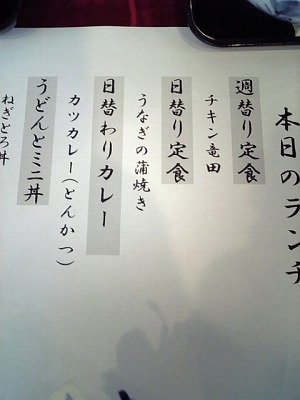 本日のランチ
週替り定食
チキン竜田
日替り定食
うなぎの蒲焼き
日替わりカレー
カツカレー(とんかつ)
うどんとミニ丼
ねぎとろ丼